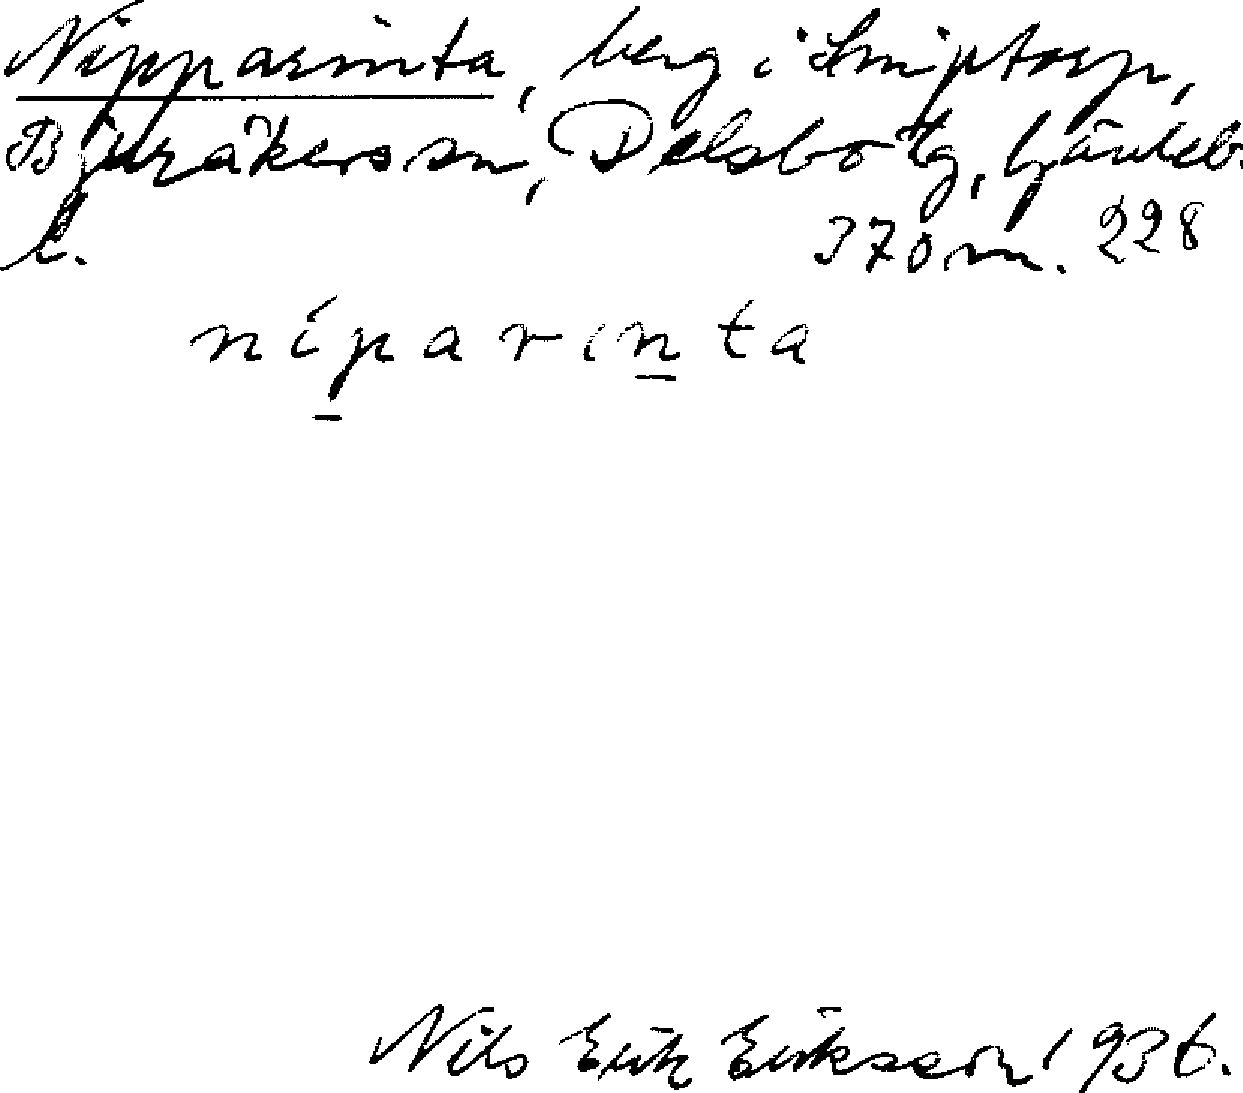 Nipparinta, berg i Sniptorp,
Bjuråkers sn, Delsbo tg, Gävleb.
l. 370 m. 228
níparinta
Nils Erik Eriksson 1936.